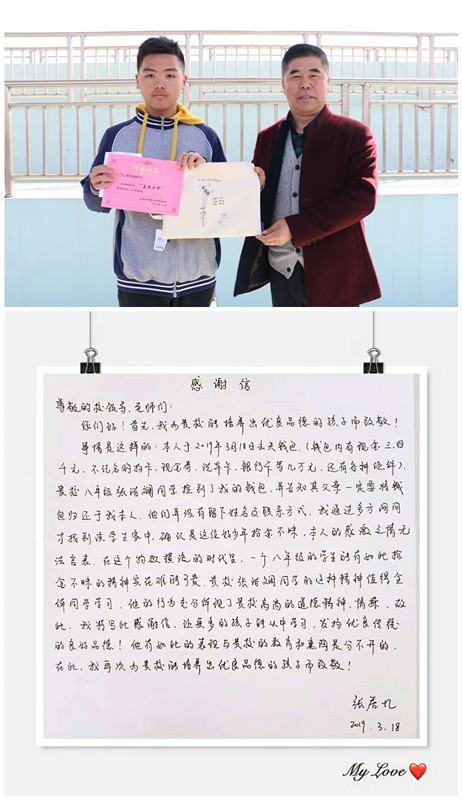 感谢信
尊敬的校领导、老师们：
您们好！首先，我为贵校能培养出优良品德的孩子而致敬！
事情是这样的：本人于2019年3月18日丢失钱包，（钱包内有现金三、四
千元，不记名的购卡，现金券，洗车卡，银行卡等几万元，还有各种证件）。
贵校八年级张浩斓同学捡到了我的钱包，并告知其父亲一定要将钱
包归还于我本人，他们并没有留下姓名及联系方式，我通过多方询问
才找到该学生家中，确认是这位好少年拾金不昧，本人的感激之情无
法言表，在这个物欲横流的时代里，一个八年级的学生能有如此拾
金不昧的精神实在难能可贵，贵校张浩斓同学的这种精神值得全
体同学学习，他的行为充分体现了贵校高尚的道德精神、情操，故
此，我特写此感谢信，让更多的孩子能从中学习，发扬优良传统
的良好品德！他有如此的表现与贵校的教育和熏陶是分不开的，
在此，我再次为贵校能培养出优良品德的孩子而致敬！
张君
2019.3.18
My Love